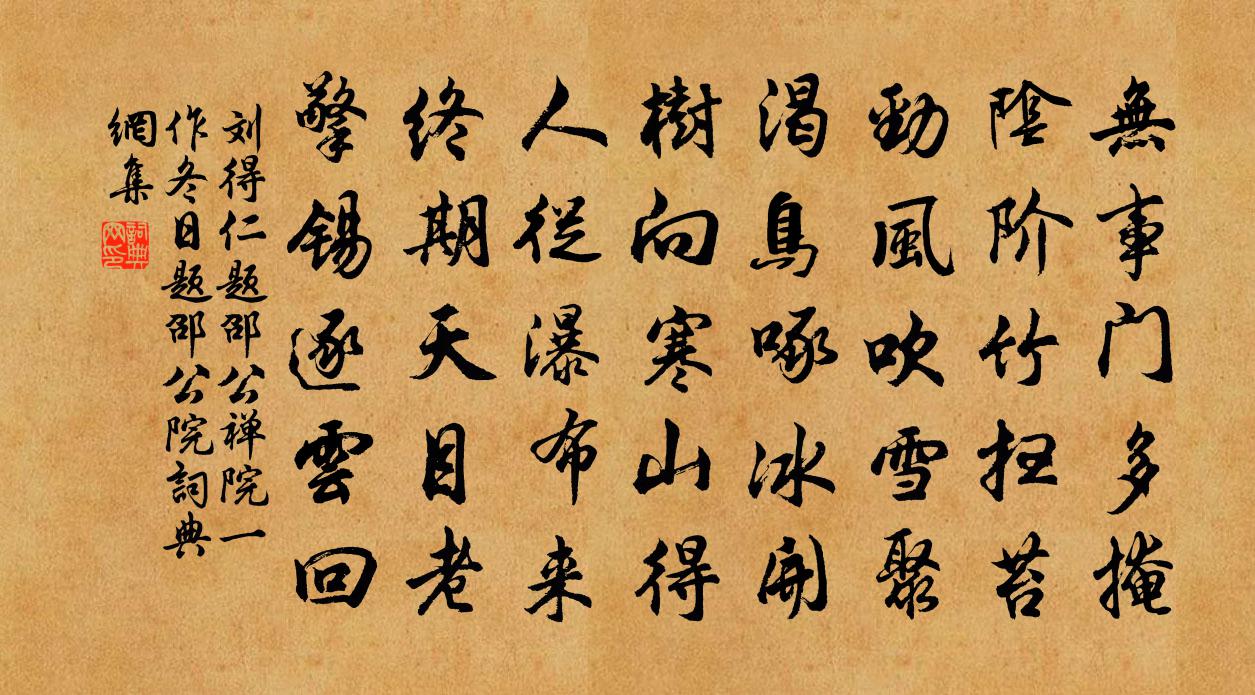 無事门多掩
陰阶竹扫苔
勁風吹雪聚
渴鳥啄冰開
樹向寒山得
人從瀑布来
终期天目老
擎錫逐雲回
刘得仁题邵公禅院一
作冬日题邵公院詞典
網集
詞典
网印